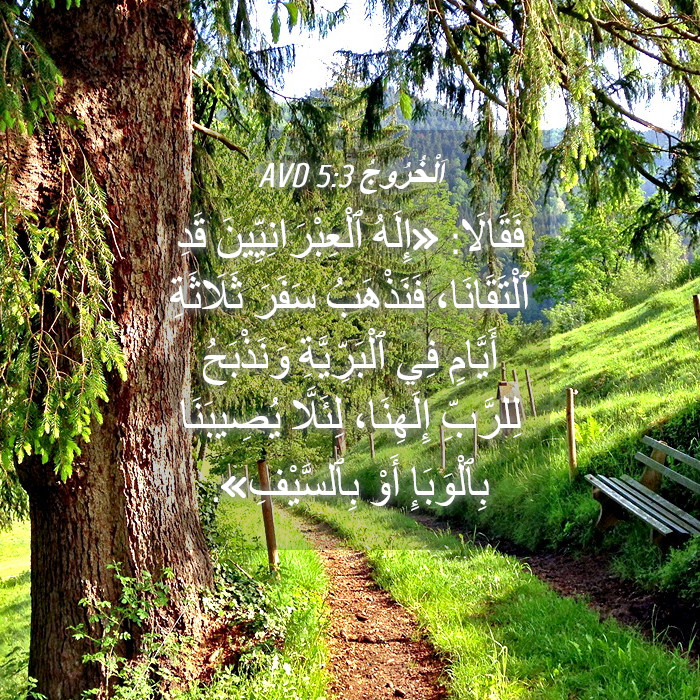 اَلْخُرُوجُ 5:3 AVD
فَقَالَا: «إِلَهُ ٱلْعِبْرَانِيِّينَ قَدِ
ٱلْتَقَانَا، فَنَذْهَبُ سَفَرَ ثَلَاثَةِ
أَيَّامٍ فِي ٱلْبَرِّيَّةِ وَنَذْبَحُ
لِلرَّبِّ إِلَهِنَا، لِئَلَّا يُصِيبَنَا
بِٱلْوَبَإِ أَوْ بِٱلسَّيْفِ»